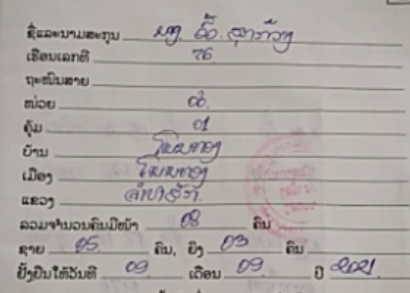 ຊື່ແລະນາມສະກຸນ
ເຮືອນເລກທີ 76
ຖະໜົນສາຍ
ໜ່ວຍ 06
ຄຸ້ມ 01
ບ້ານ ໂພນທອງ
ເມືອງ ໂພນທອງ
ແຂວງ ຈຳປາສັກ
ລວມຈຳນວນຄົນມີໜ້າ 08 ຄົນ
ຊາຍ 05 ຄົນ, ຍິງ 03 ຄົນ
ຢັ້ງຢືນໃຫ້ວັນທີ 09 ເດືອນ 09 ປີ 2021